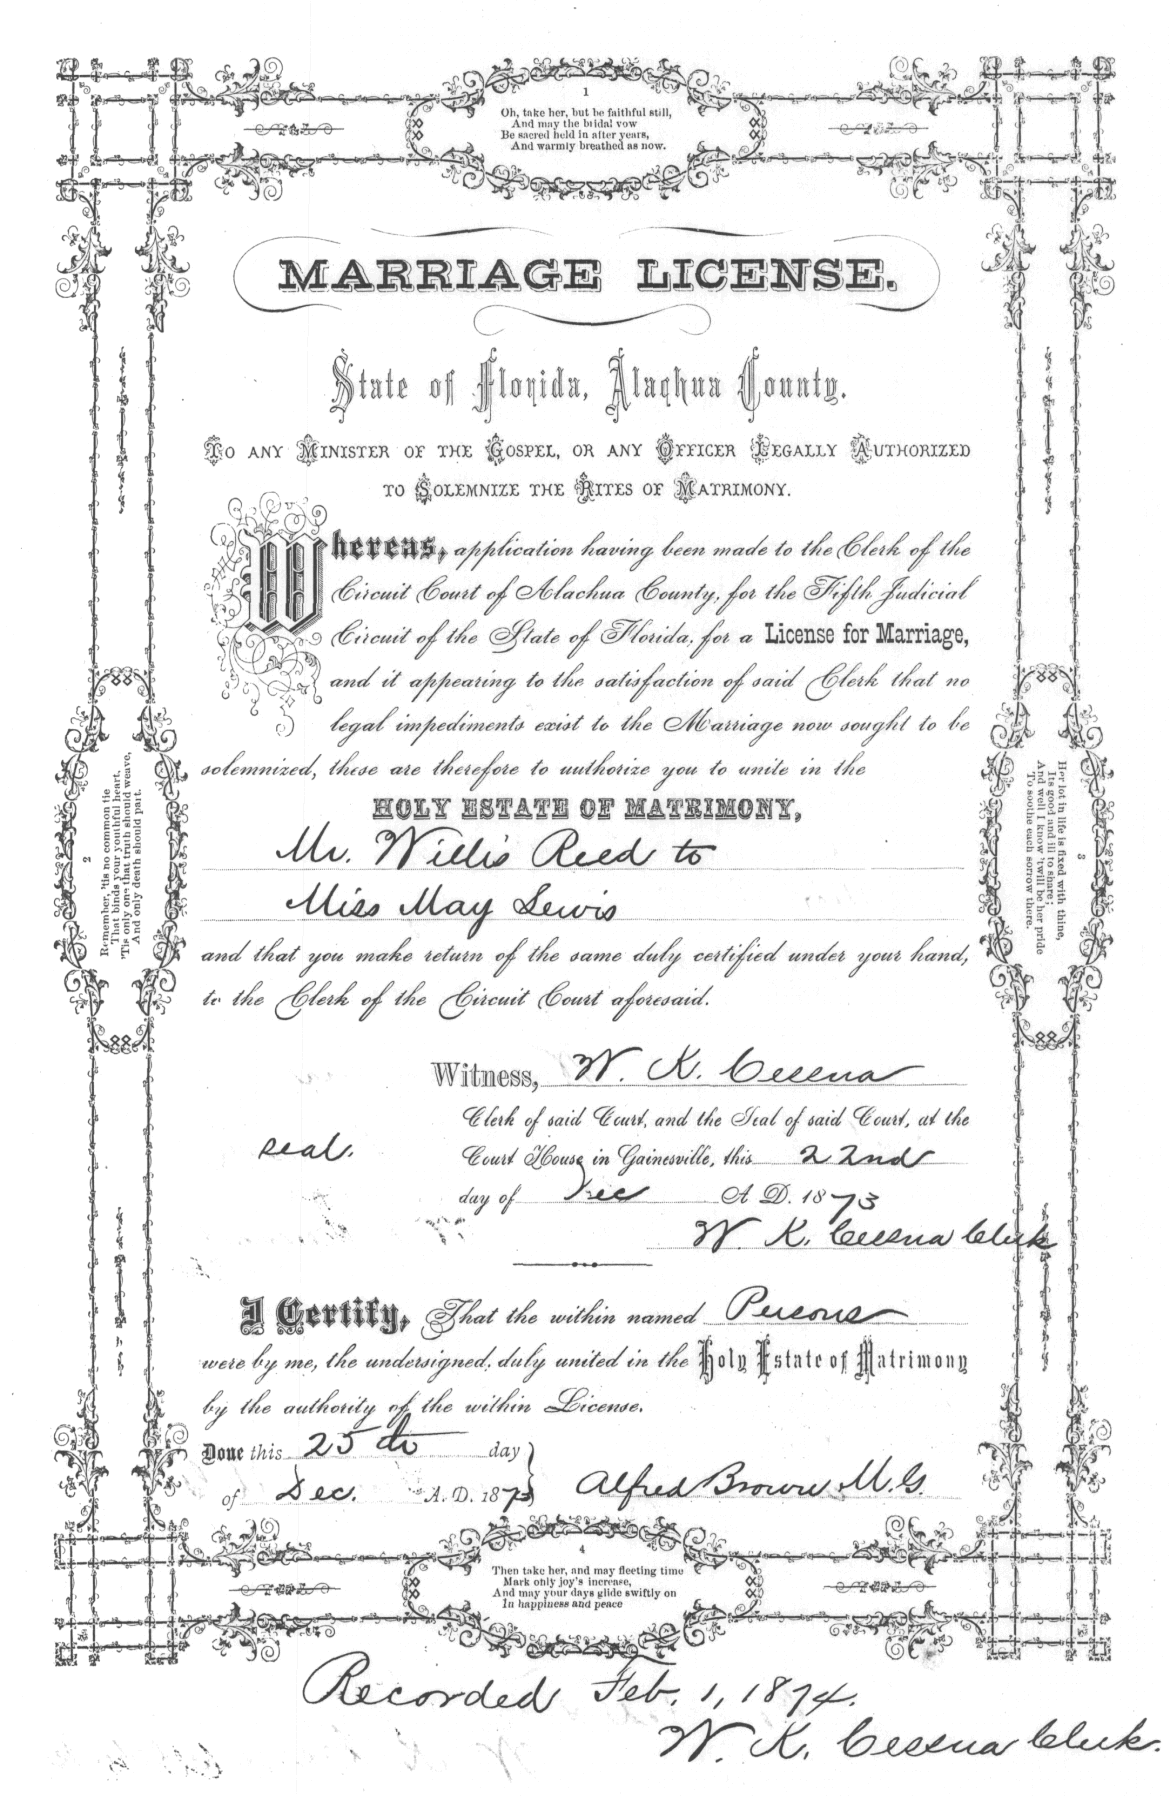 1
Oh, take her, but be faithful still,
And may the bridal vow
Be sacred held in after years,
And warmly breathed as now.
MARRIAGE LICENSE.
State of Florida, Alachua County.
TO ANY MINISTER OF THE GOSPEL, OR ANY OFFICER LEGALLY AUTHORIZED
TO SOLEMNIZE THE RITES OF MATRIMONY.
Whereas, application having been made to the Clerk of the
Circuit Court of Alachua County, for the Fifth Judicial
Circuit of the State of Florida, for a License for Marriage,
and it appearing to the satisfaction of said Clerk that no
legal impediments exist to the Marriage now sought to be
solemnized, these are therefore to authorize you to unite in the
HOLY ESTATE OF MATRIMONY,
Mr. Willis Reed to
Miss May Lewis
and that you make return of the same duly certified under your hand,
to the Clerk of the Circuit Court aforesaid.
Witness, W. K. Cessna
Clerk of said Court, and the Seal of said Court, at the
seal.
Court House in Gainesville, this 22nd
day of Dec A. D. 1873
W. K. Cessna Clerk
I Certify, That the within named Persons
were by me, the undersigned, duly united in the Holy Estate of Matrimony
by the authority of the within License.
Done this 25th day
of Dec. A. D. 1873 Alfred Brown M. G.
2
Remember, 'tis no common tie
That binds your youthful heart,
'Tis only one that truth should weave,
And only death should part.
3
Her lot in life is fixed with thine,
Its good and ill to share;
And well I know 'twill be her pride
To soothe each sorrow there.
4
Then take her, and may fleeting time
Mark only joy's increase,
And may your days glide swiftly on
In happiness and peace
Recorded Feb. 1, 1874.
W. K. Cessna Clerk.